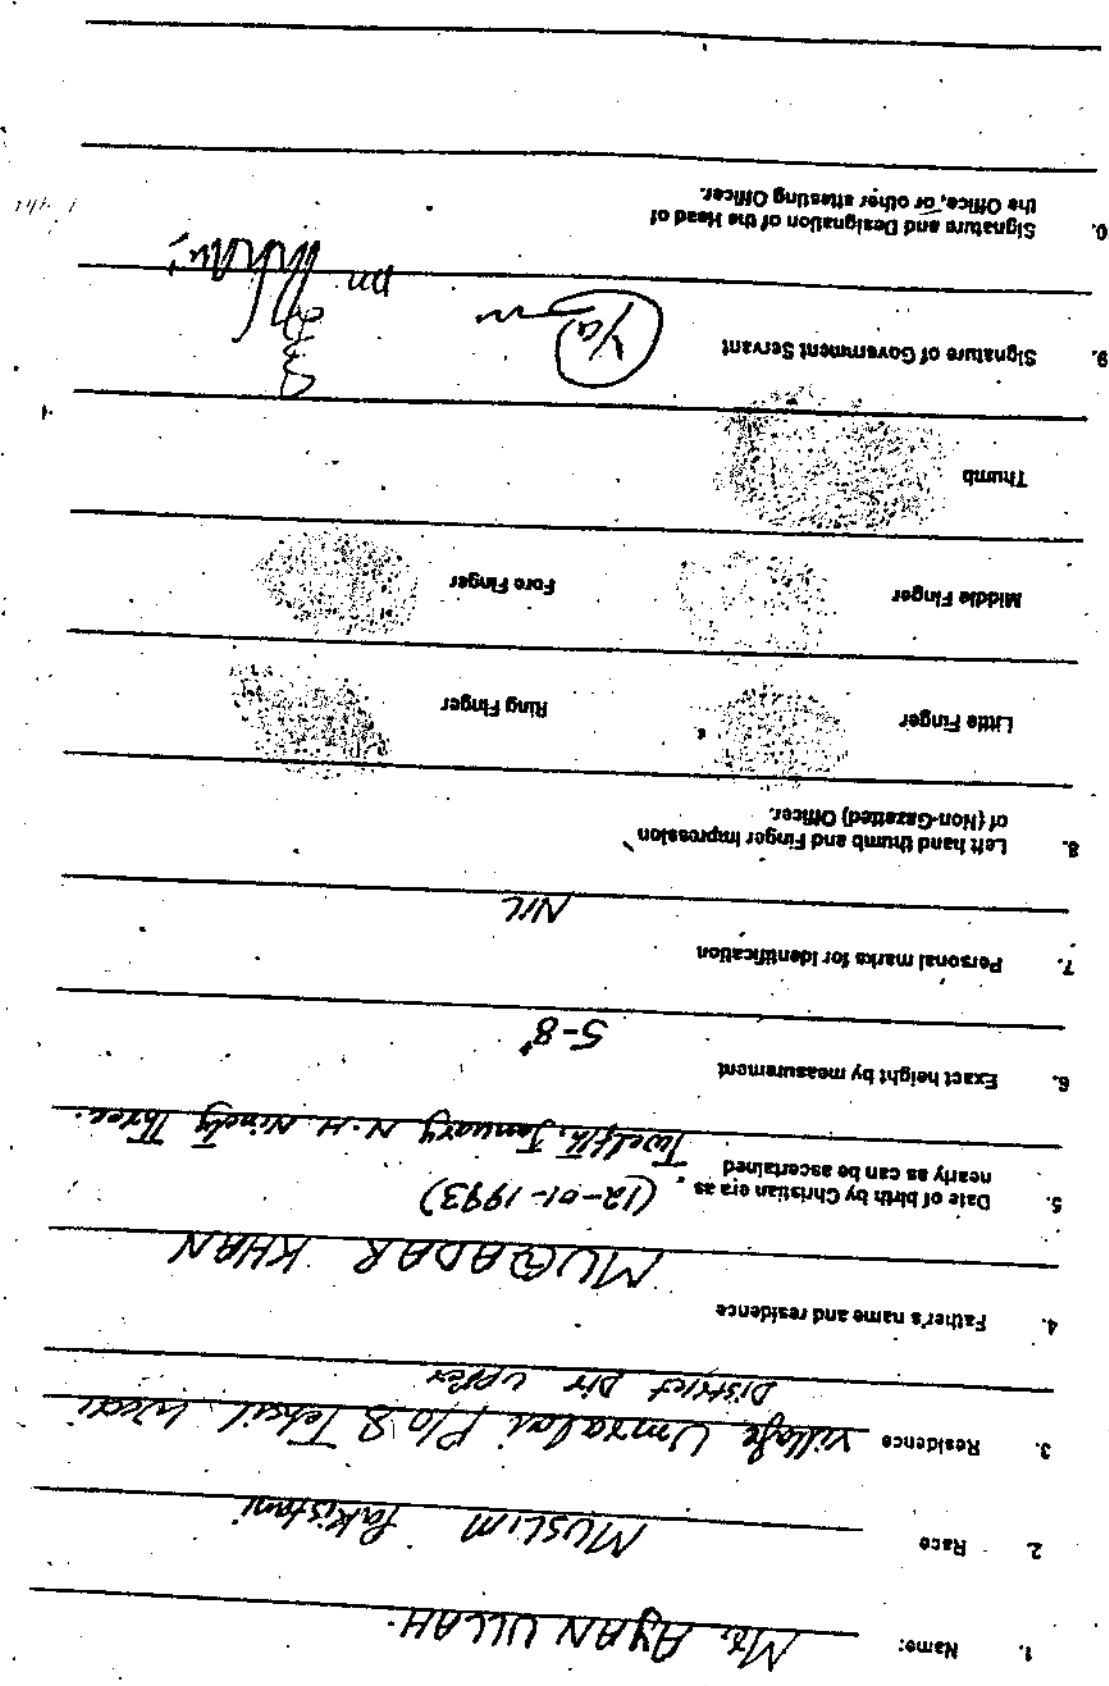 1. Name: Mr. AYAN ULLAH.
2. Race MUSLIM Pakistani
3. Residence Village Umralai P/O & Tehsil Wari
DISTRICT Dir UPPER
4. Father's name and residence
MUQADAR KHAN
5. Date of birth by Christian era as (12-01-1993)
nearly as can be ascertained Twelfth, January N.H Ninety Three.
6. Exact height by measurement
5-8"
7. Personal marks for identification
NIL
8. Left hand thumb and Finger impression
of (Non-Gazatted) Officer.
Little Finger Ring Finger
Middle Finger Fore Finger
Thumb
9. Signature of Government Servant
0. Signature and Designation of the Head of
the Office, or other attesting Officer.